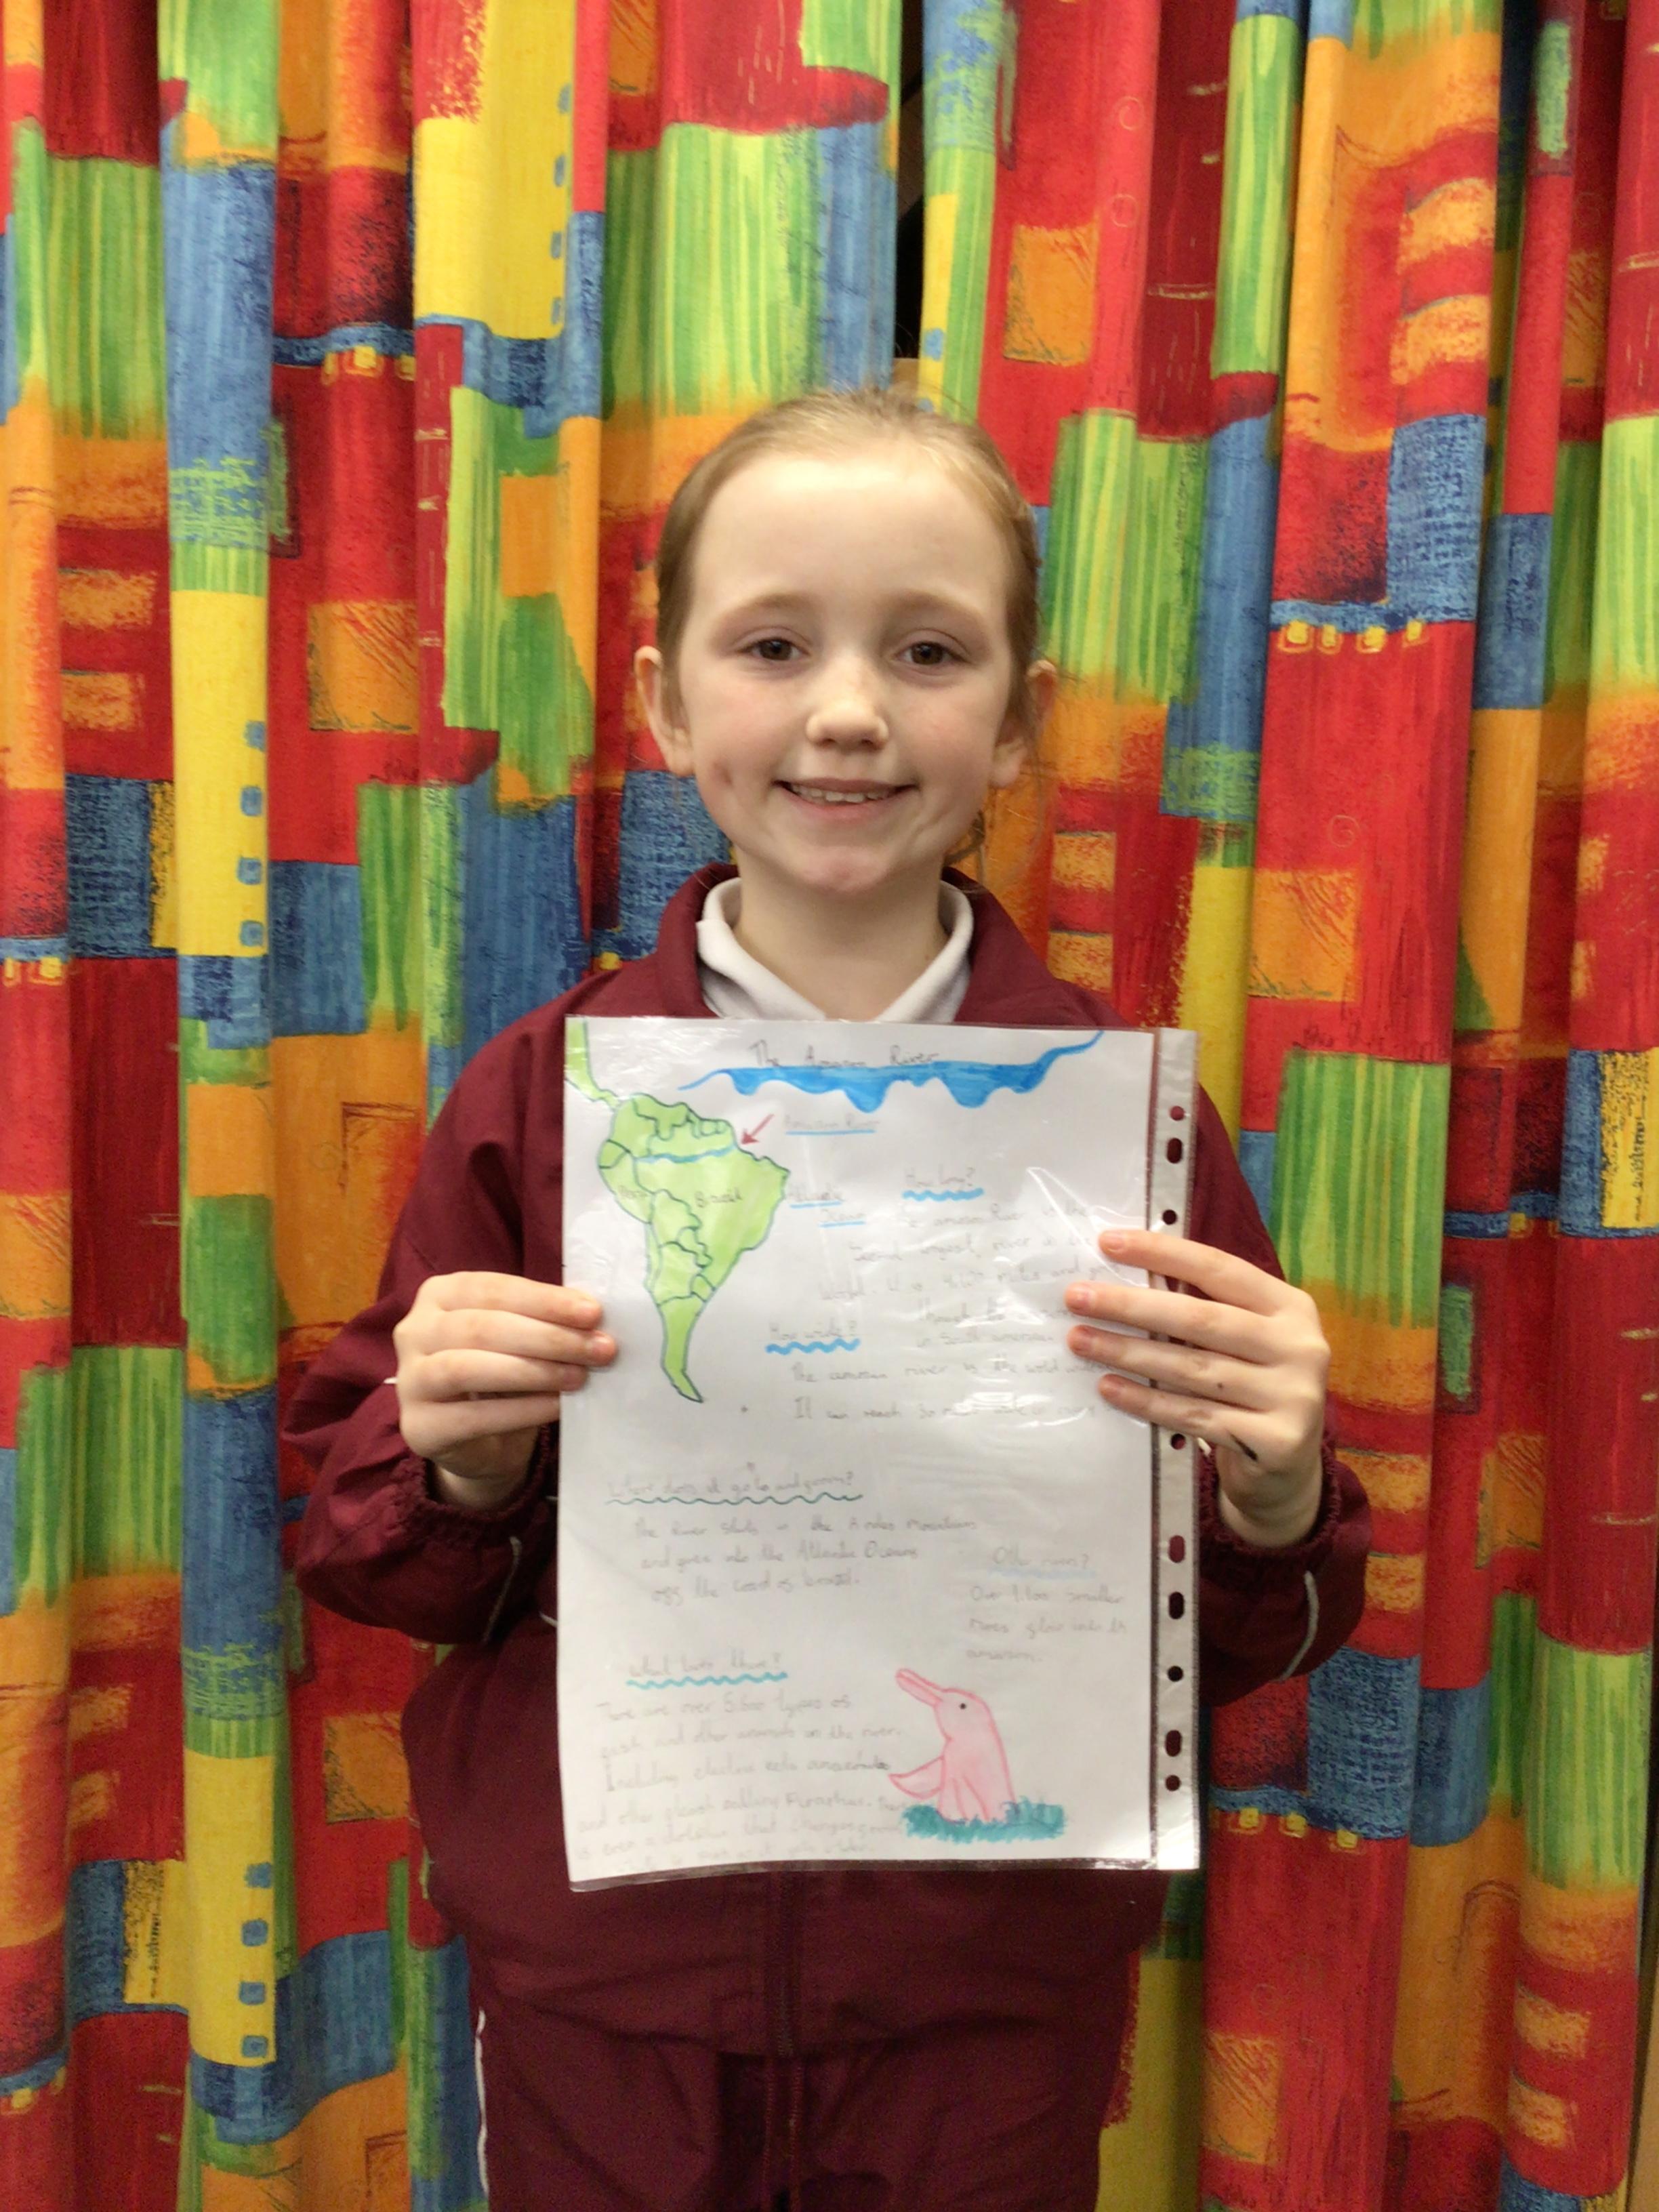 The Amazon River
Amazon River
Brazil
Atlantic
Ocean
How long?
amazon River is the
second longest river in the
World. It is miles and
through the
in South america.
How wide?
The amazon river is the
It can reach 30 miles
Where does it go to and from?
The River starts in the Andes Mountains
and goes into the Atlantic Oceans
off the coast of brazil.
Other rivers?
Over 1.100 smaller
rivers flow into the
amazon.
What lives there?
There are over 5.600 types of
fish and other animals in the river.
Including electric eels anacondas
and other flesh eating Piranhas.
is even a dolphin that changes